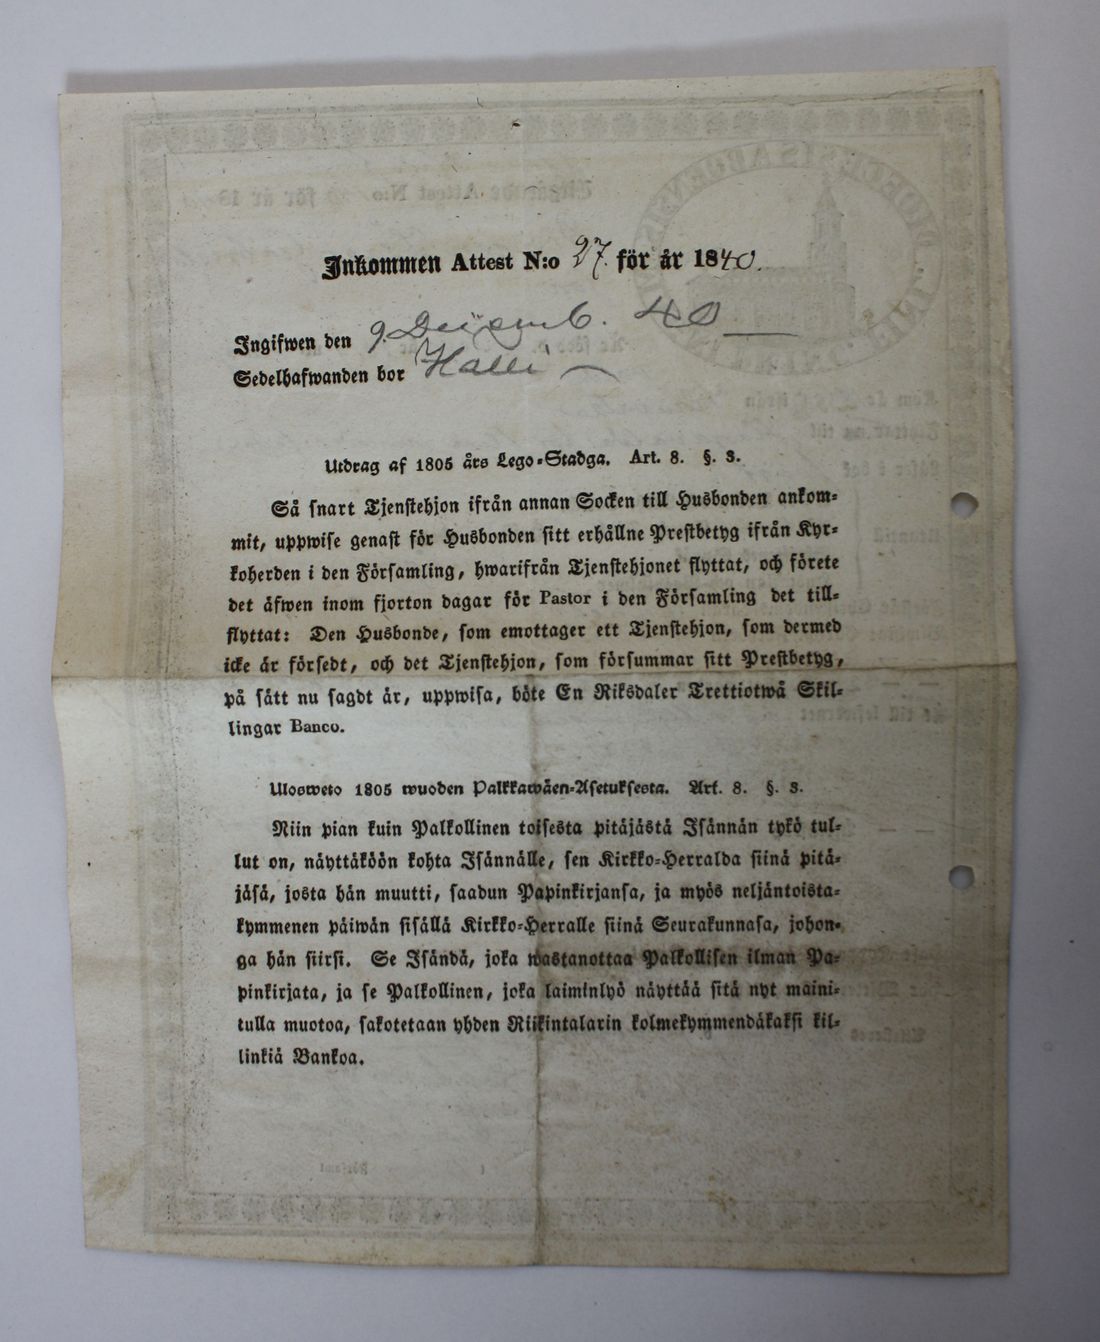 Inkommen Attest N:o 27. för år 1840.
Ingifwen den 9. Decemb. 40
Sedelhafwanden bor Halli
Utdrag af 1805 års Lego-Stadga. Art. 8. §. 3.
Så snart Tjenstehjon ifrån annan Socken till Husbonden ankom-
mit, uppwise genast för Husbonden sitt erhållne Prestbetyg ifrån Kyr-
koherden i den Församling, hwarifrån Tjenstehjonet flyttat, och förete
det äfwen inom fjorton dagar för Pastor i den Församling det till-
flyttat: Den Husbonde, som emottager ett Tjenstehjon, som dermed
icke är försedt, och det Tjenstehjon, som försummar sitt Prestbetyg,
på sätt nu sagdt är, uppwisa, böte En Riksdaler Trettiotwå Skil-
lingar Banco.
Ulosweto 1805 wuoden Palkkawäen-Asetuksesta. Art. 8. §. 3.
Niin pian kuin Palkollinen toisesta pitäjästä Isännän tykö tul-
lut on, näyttäköön kohta Isännälle, sen Kirkko-Herralda siinä pitä-
jäsä, josta hän muutti, saadun Papinkirjansa, ja myös neljäntoista-
kymmenen päiwän sisällä Kirkko-Herralle siinä Seurakunnasa, johon-
ga hän siirsi. Se Isändä, joka wastanottaa Palkollisen ilman Pa-
pinkirjata, ja se Palkollinen, joka laiminlyö näyttää sitä nyt maini-
tulla muotoa, sakotetaan yhden Riikintalarin kolmekymmendäkaksi kil-
linkiä Bankoa.